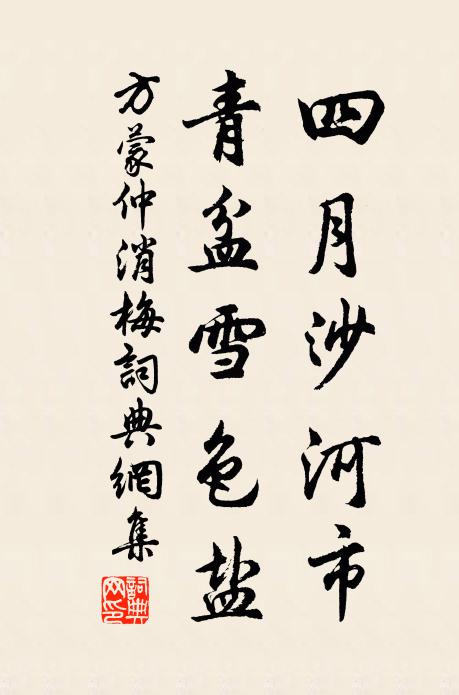 四月沙河市
青盆雪色盐
方蒙仲消梅詞典網集
詞典网印